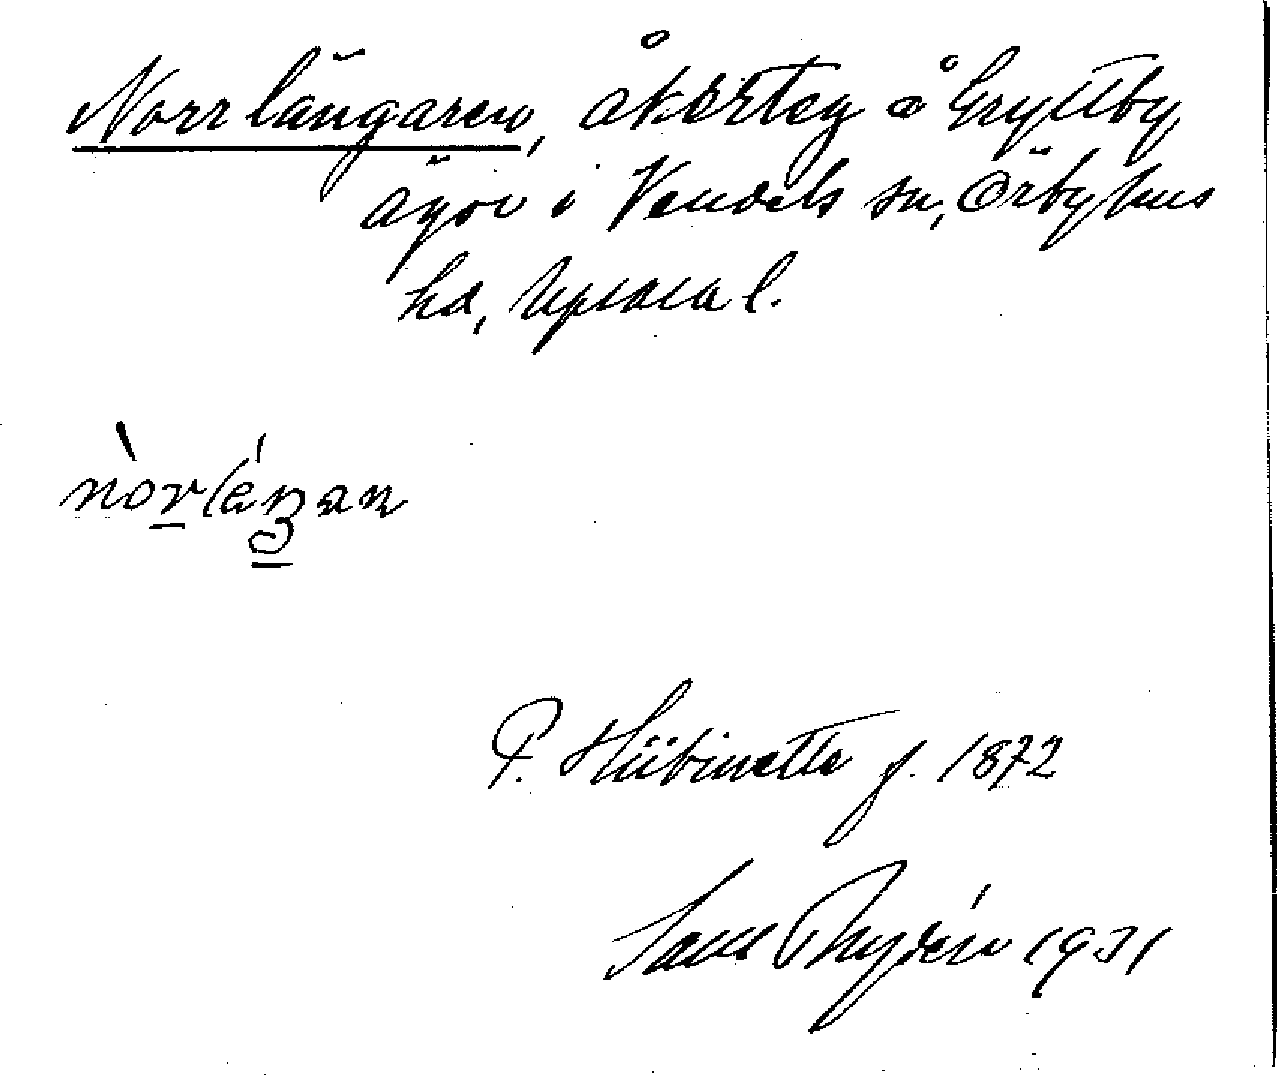 Norrlängaren, åkerteg å Gryttby
ägor i Vendels sn, Örbyhus
hd, Uppsala l.
nòrléŋan
P. Hübinette f. 1872
Rydén 1931